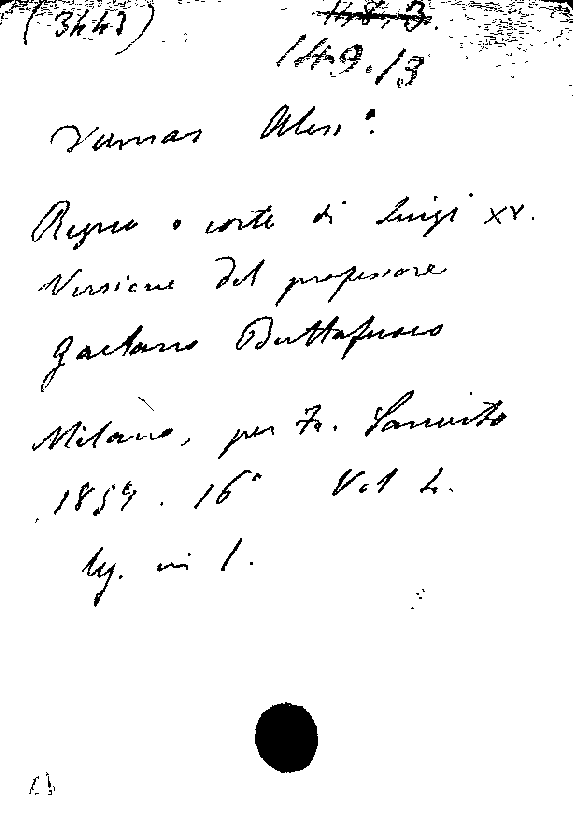 (3443) 148.3.
149.13
Dumas Aless°.
Regno e corte di Luigi XV.
Versione del professore
Gaetano Buttafuoco
Milano, per Fr. Sanvito
1859. 16° Vol 2.
lg. in 1.